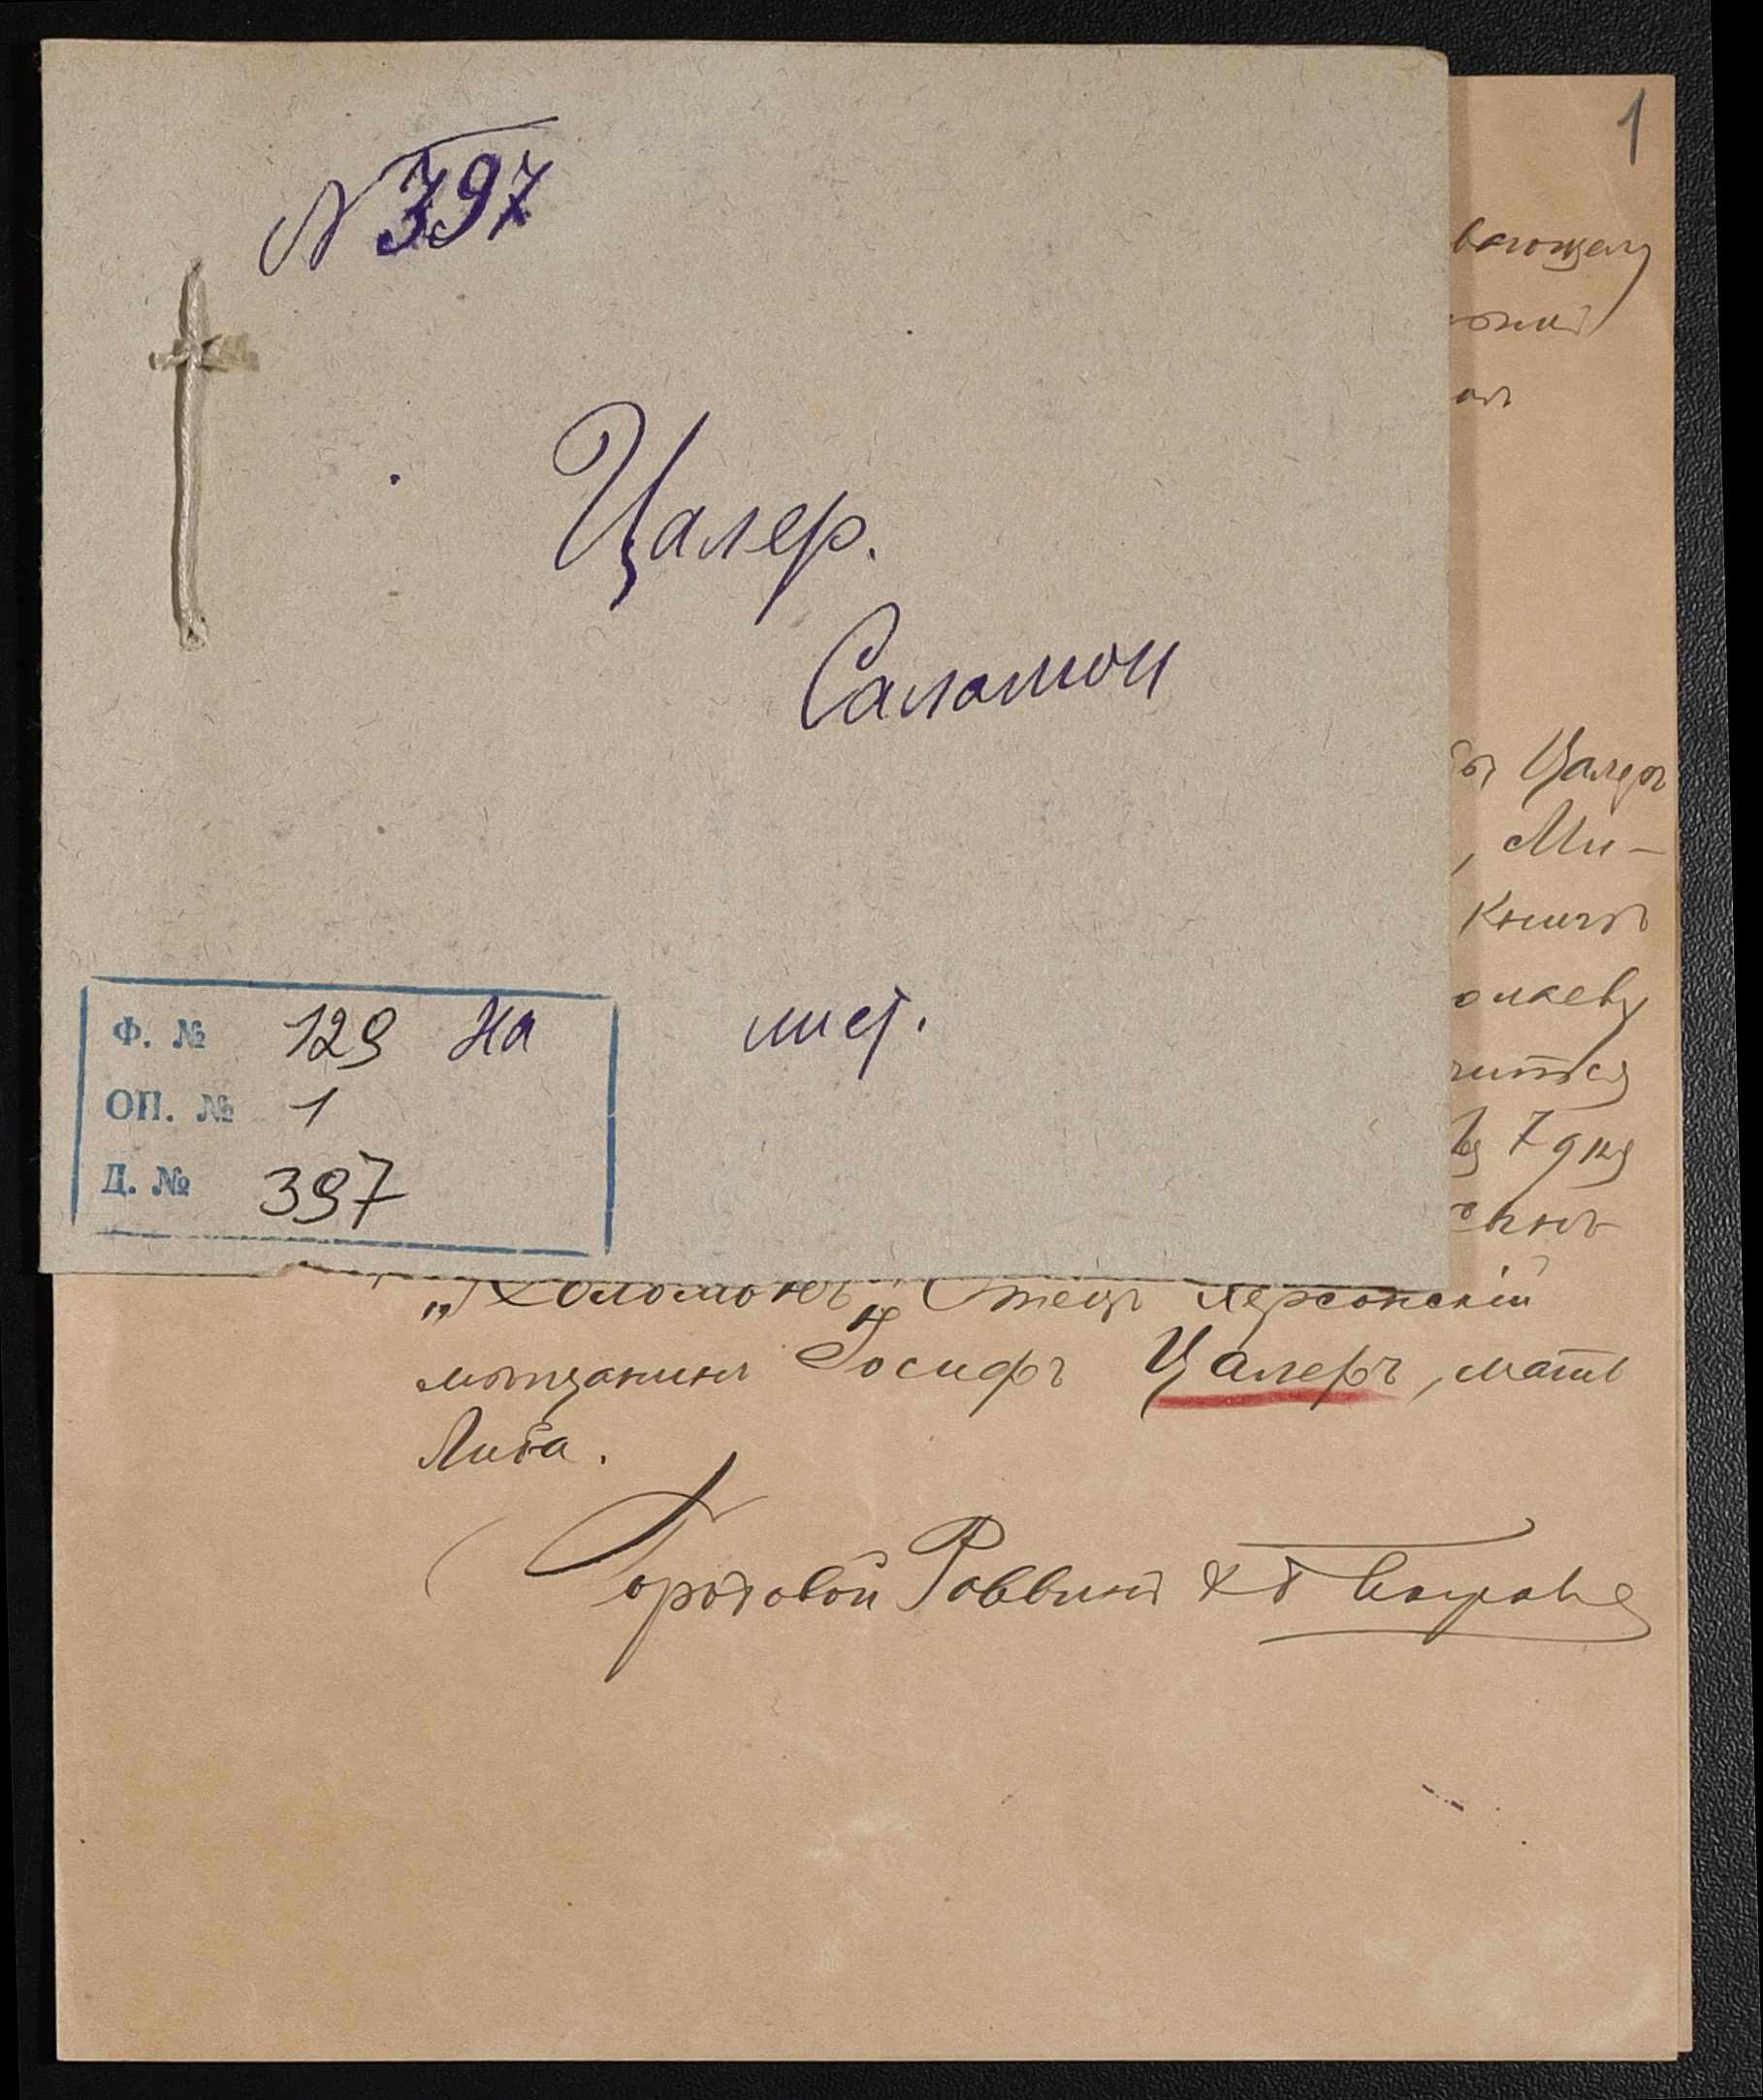 № 397
Цалер.
Саламон
Ф. № 129 На лист.
ОП. № 1
Д. № 397
1
вающему
Цалеръ
, Ми-
книгѣ
олаеву
чится
7 дня
сынъ
„Соломонъ“ Отецъ Херсонскій
мѣщанинъ Іосифъ Цалеръ, мать
Либа.
Городовой Раввинъ